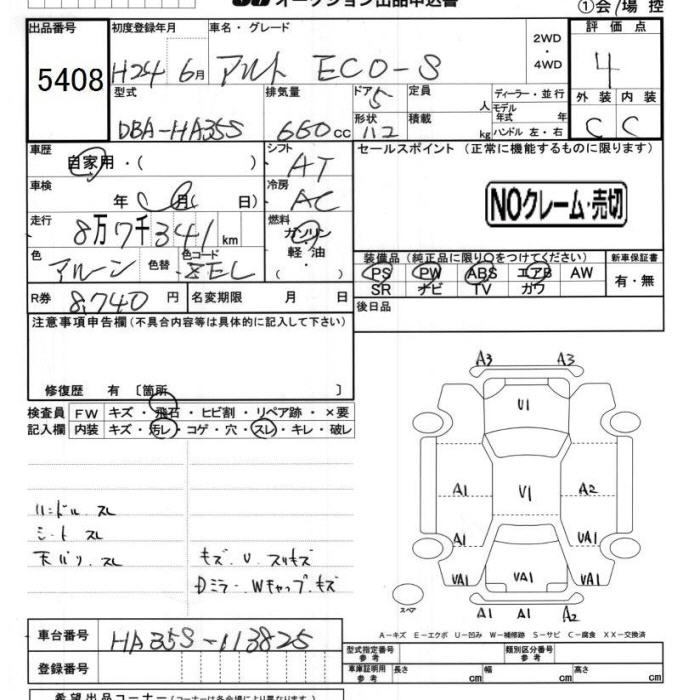 オークション出品申込書
①会/場 控
出品番号
5408
初度登録年月
H24 6月
車名・グレード
アルト ECO-S
2WD
・
4WD
評価点
4
型式
DBA-HA35S
排気量
660cc
ドア
5
形状
112
定員
人
積載
kg
ディーラー・並行
モデル
年式 年
ハンドル 左・右
外装 内装
C C
車歴
自家用・( )
シフト
AT
車検
年( 月( 日)
冷房
AC
走行
8万7千341km
燃料
ガソリン
軽油
( )
色
色替
色コード
8EL
セールスポイント (正常に機能するものに限ります)
NOクレーム・売切
装備品 (純正品に限り○をつけてください)
新車保証書
PS PW ABS エアB AW
SR ナビ TV カワ
有・無
R券 8,740円
名変期限 月 日
後日品
注意事項申告欄(不具合内容等は具体的に記入して下さい)
修復歴 有 〔箇所 〕
検査員 FW キズ・飛石・ヒビ割・リペア跡・×要
記入欄 内装 キズ・汚レ・コゲ・穴・スレ・キレ・破レ
ハンドル.スレ
シート.スレ
天バリ.スレ
キズ.U.スリキズ
Dミラー.Wキャップ.キズ
A3 A3
U1
A1 U1 A2
A1 UA1
UA1 UA1 UA1
A1 A1 A2
スペア
A-キズ E-エクボ U-凹み W-補修跡 S-サビ C-腐食 XX-交換済
車台番号
HA35S-113825
登録番号
型式指定番号
参考
類別区分番号
参考
車庫証明用
参考
長さ cm 幅 cm 高さ cm
希望出品コーナー(コーナーは各会場により異なります)